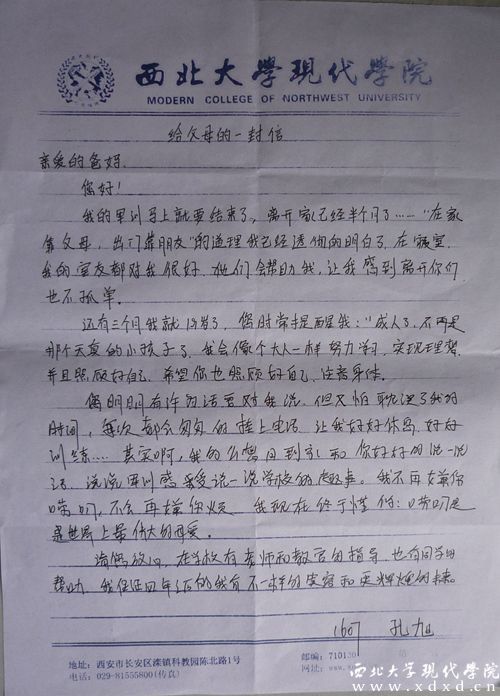 西北大学现代学院
MODERN COLLEGE OF NORTHWEST UNIVERSITY
给父母的一封信
亲爱的爸妈.
您好!
我的军训马上就要结束了，离开家已经半个月了……"在家
靠父母，出门靠朋友"的道理我已经透彻的明白了.在寝室.
我的室友都对我很好.她们会帮助我，让我感到离开你们
也不孤单.
还有三个月我就18岁了，您时常提醒我："成人了，不再是
那个天真的小孩子了，我会像个大人一样努力学习，实现理想
并且照顾好自己.希望您也照顾好自己.注意身体.
您明明有许多话要对我说.但又怕耽误了我的
时间，每次都会匆匆的挂上电话.让我好好休息.好好
训练.... 其实啊，我多么想回到家和你好好的说一说
话.说说军训感受说一说学校的趣事。我不再嫌你
唠叨，不会再嫌你烦.我现在终于懂得：唠叨是
是世界上最伟大的母爱.
请您放心，在学校有老师和教官的指导，也有同学的
帮助.我保证四年后的我有不一样的
1607 孔旭
地址：西安市长安区滦镇科教园陈北路1号
电话：029-81555800(传真)
邮编：7101
网址：www.
西北大学现代学院
www.xdxd.cn